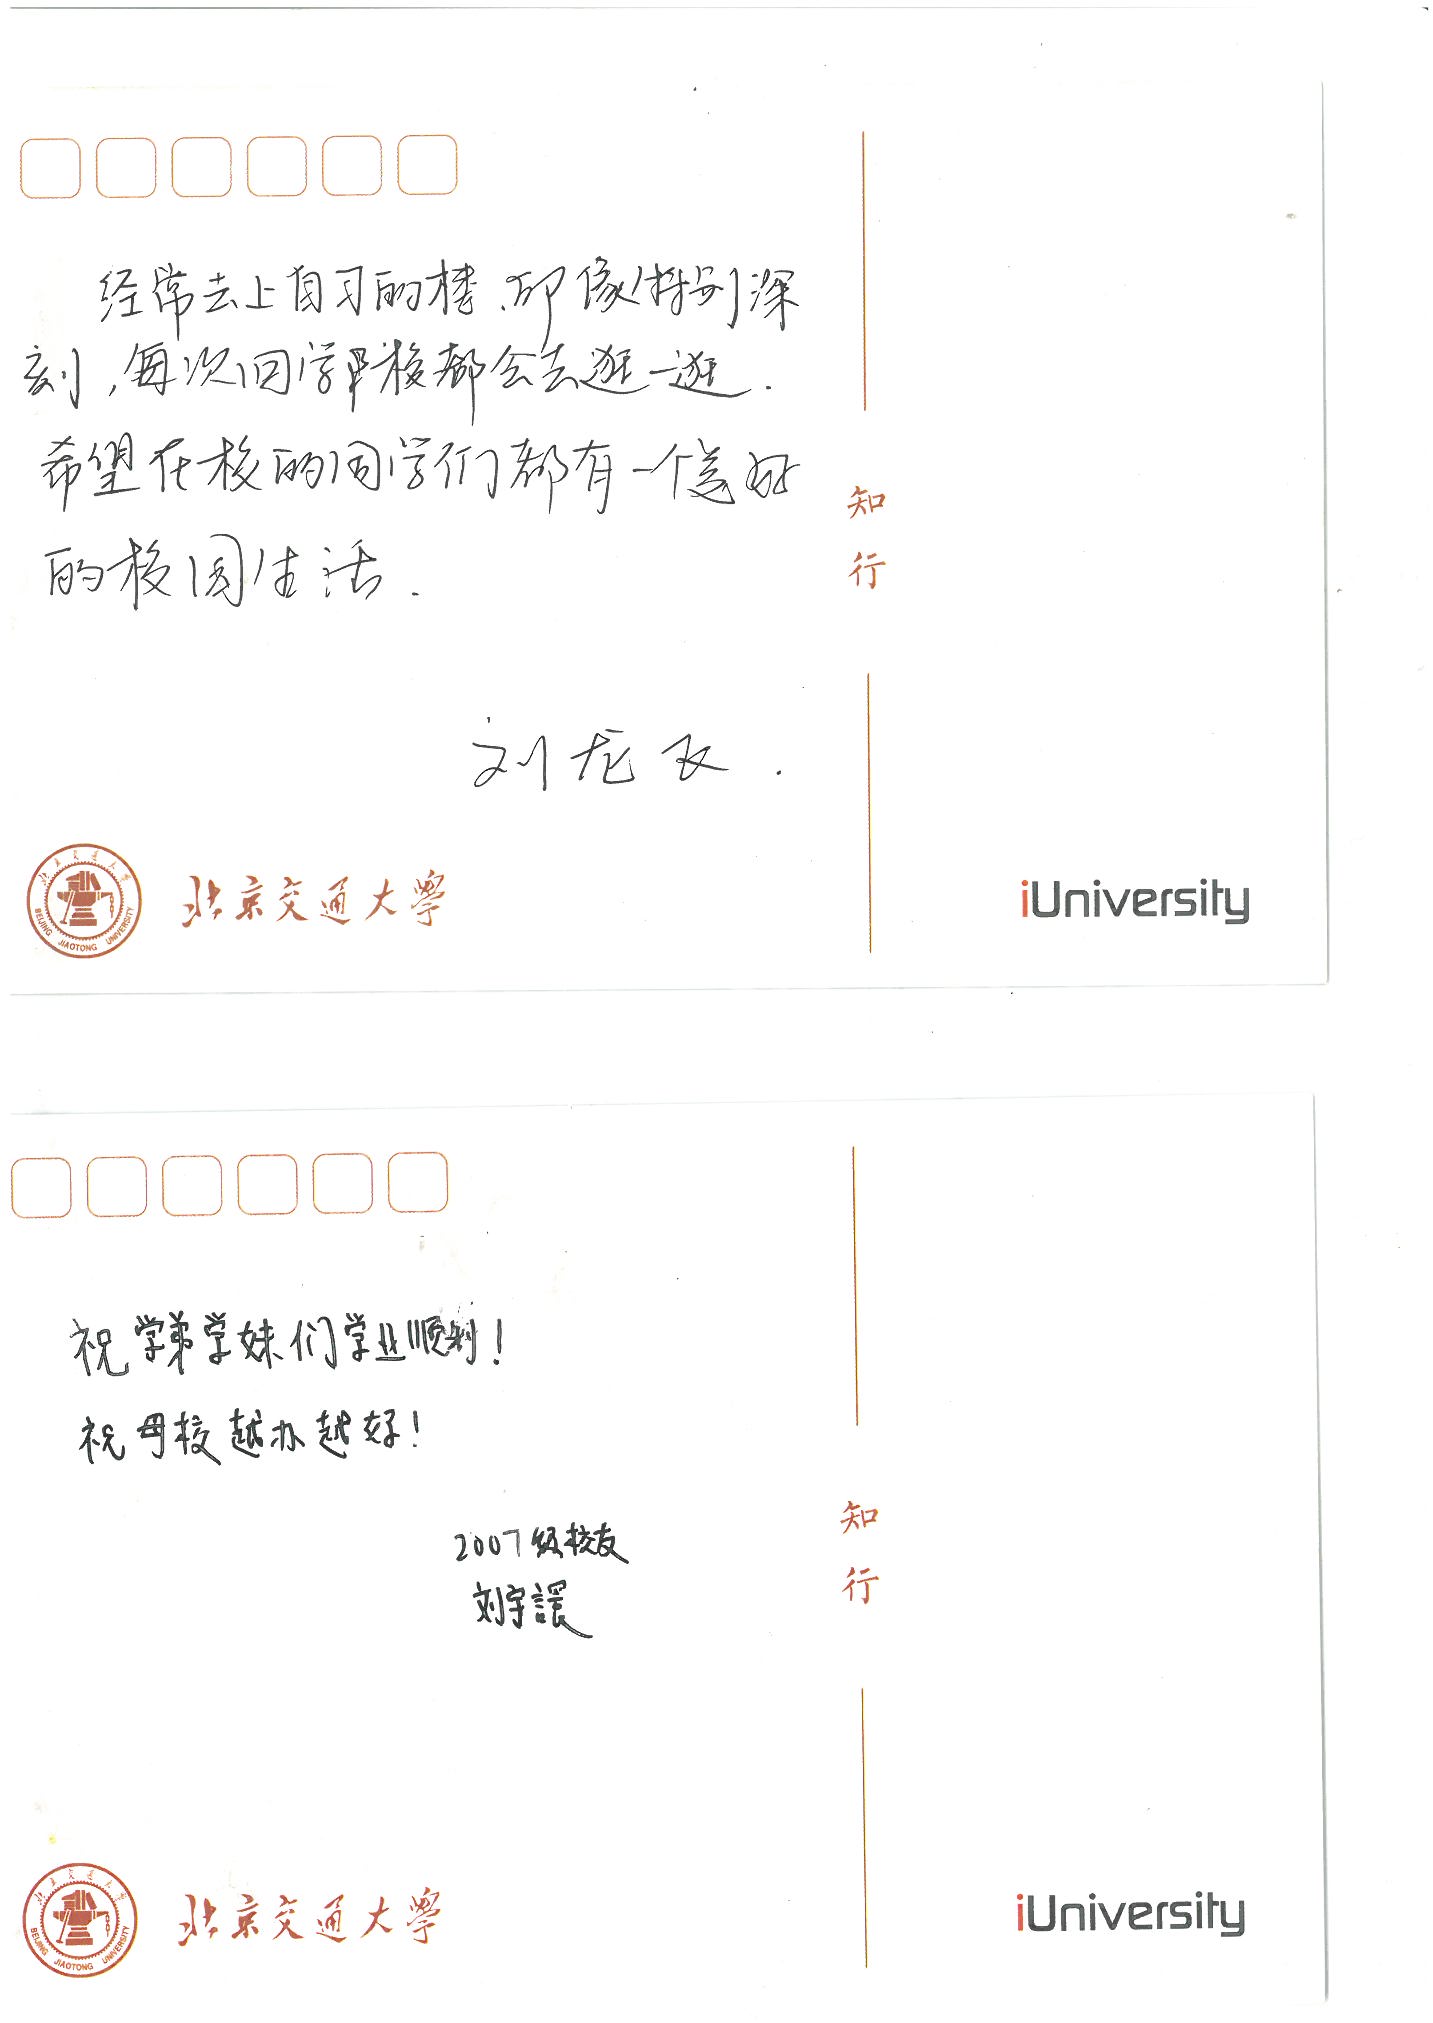 经常去上自习的楼.印像特别深
刻,每次回学校都会去逛一逛.
希望在校的同学们都有一个美好
的校园生活.
刘龙飞.
知
行
北京交通大学
BEIJING JIAOTONG UNIVERSITY
北京交通大學
iUniversity
祝学弟学妹们学业顺利!
祝母校越办越好!
2007级校友
刘宇
知
行
北京交通大学
BEIJING JIAOTONG UNIVERSITY
北京交通大學
iUniversity